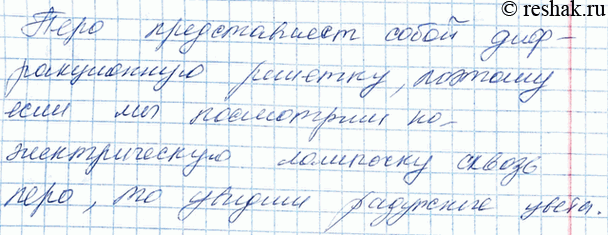 reshak.ru
Перо представляет собой диф-
ракционную решетку, поэтому
если мы посмотрим на
электрическую лампочку сквозь
перо, то увидим радужные цвета.